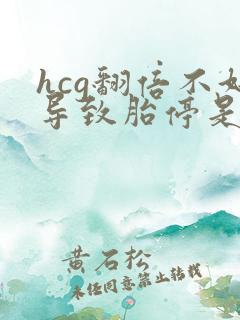 hcg翻倍不
导致胎停是
黄石松
未经同意禁止转载